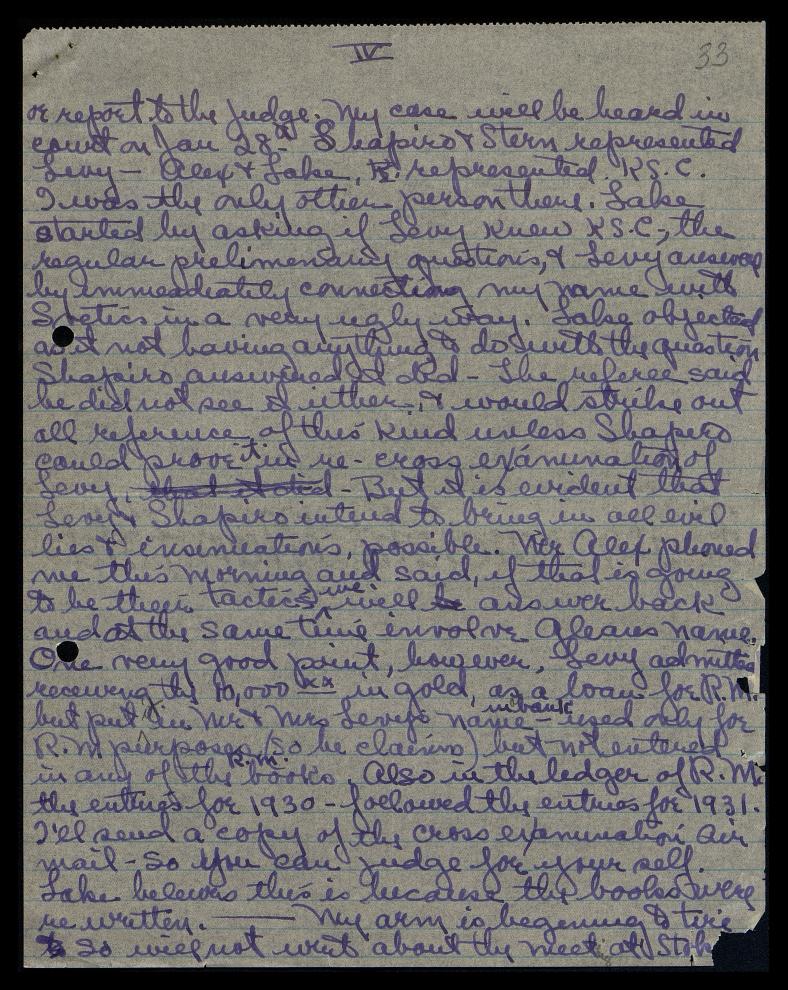 IV 33
or report to the judge. My case will be heard in
court on Jan 28th Shapiro & Stern represented
Levy - Alex & Lake, R. represented. K.S.C.
I was the only other person there. Lake
started by asking if Levy knew K.S.C., the
regular preliminary questions, & Levy answered
by immediately connecting my name with
Soviets in a very ugly way. Lake objected
as it not having anything to do with the question
Shapiro answered it did - The referee said
he did not see it either, & would strike out
all reference of this kind unless Shapiro
could prove it in re-cross examination of
Levy, that it did - But it is evident that
Levy & Shapiro intend to bring in all evil
lies & insinuations, possible. Mr Alex phoned
me this morning and said, if that is going
to be their tactics we will be answer back
and at the same time involve Aleaus name.
One very good point, however, Levy admitted
receiving the 10,000 xx in gold, as a loan for R.M.
but put in Mr & Mrs Levy's name - in bank used only for
R.M purposes (so he claims) but not entered
in any of the R.M. books. Also in the ledger of R.M.
the entries for 1930 - followed the entries for 1931.
I'll send a copy of the cross examination air
mail - so you can judge for your self.
Lake believes this is because the books were
re written. — My arm is beginning to tire
so will not write about the meet at Stok